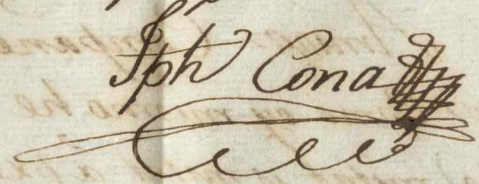 Jph Cona